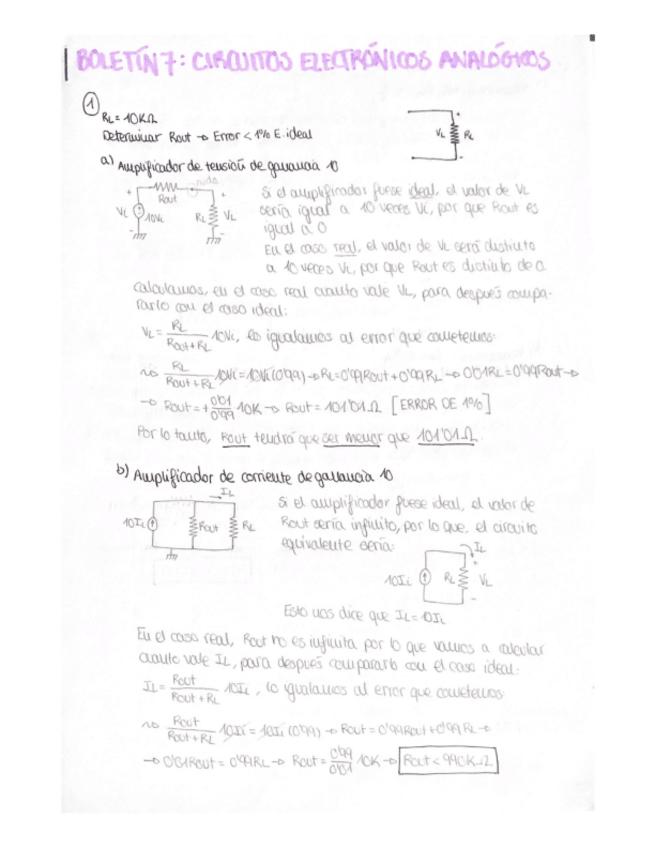 BOLETÍN 7: CIRCUITOS ELECTRÓNICOS ANALÓGICOS
1
RL = 10KΩ
Determinar Rout → Error < 1% E. ideal
VL RL
a) Amplificador de tensión de ganancia 10
Rout
Vi 10Vi RL VL
Si el amplificador fuese ideal, el valor de VL
sería igual a 10 veces Vi, por que Rout es
igual a 0
En el caso real, el valor de VL será distinto
a 10 veces Vi, por que Rout es distinto de 0.
Calculamos, en el caso real cuanto vale VL, para después compa-
rarlo con el caso ideal:
VL = RL / (Rout + RL) 10Vi, lo igualamos al error que cometemos:
RL / (Rout + RL) 10Vi = 10Vi (0'99) → RL = 0'99Rout + 0'99RL → 0'01RL = 0'99Rout →
→ Rout = + 0'01 / 0'99 10K → Rout = 101'01Ω [ERROR DE 1%]
Por lo tanto, Rout tendrá que ser menor que 101'01Ω.
b) Amplificador de corriente de ganancia 10
IL
10Ii Rout RL
Si el amplificador fuese ideal, el valor de
Rout sería infinito, por lo que, el circuito
equivalente sería:
IL
10Ii RL VL
Esto nos dice que IL = 10Ii
En el caso real, Rout no es infinita por lo que vamos a calcular
cuanto vale IL, para después compararlo con el caso ideal:
IL = Rout / (Rout + RL) 10Ii, lo igualamos al error que cometemos:
Rout / (Rout + RL) 10Ii = 10Ii (0'99) → Rout = 0'99Rout + 0'99RL →
→ 0'01Rout = 0'99RL → Rout = 0'99 / 0'01 10K → Rout < 990KΩ